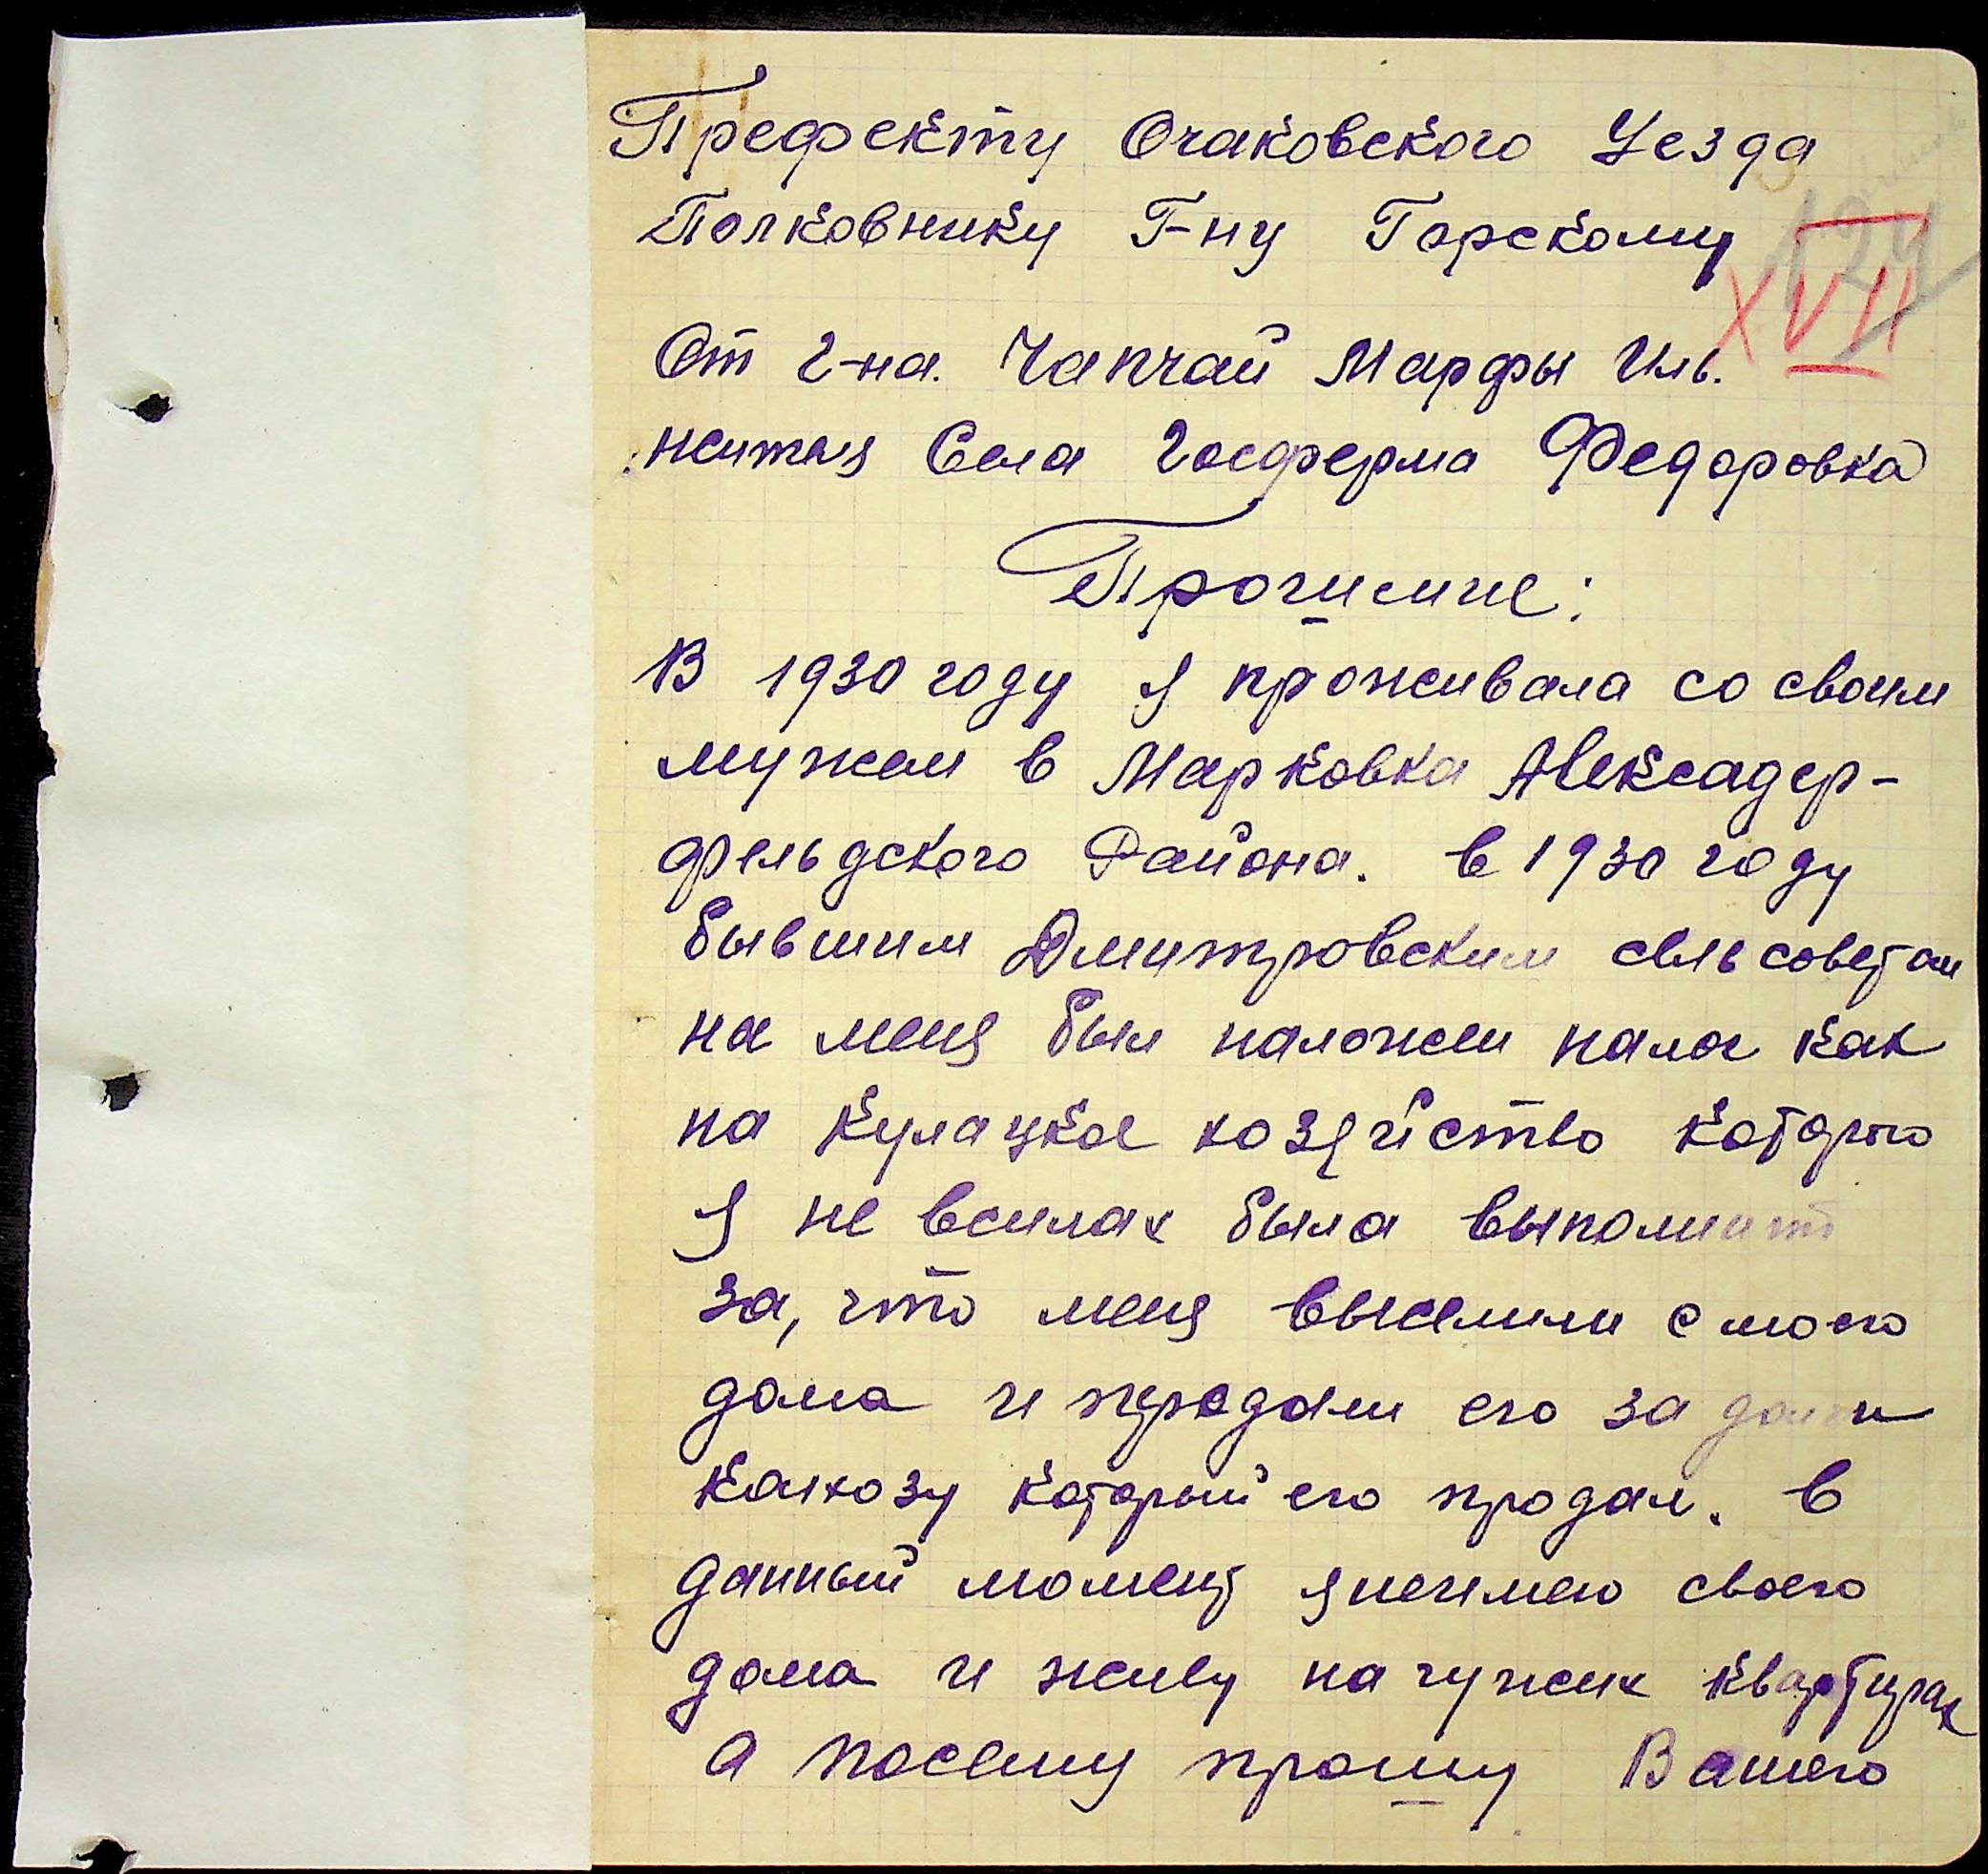 Префекту Очаковского Уезда
Полковнику Г-ну Горскому
XVII
От г-на. Чапчай Марфы Иль.
житля Села Госферма Федоровка
Прошимие:
В 1930 году я проживала со своим
мужем в Марковка Алексадер-
фельдского Района. в 1930 году
бывшим Дмитровским сельсоветом
на меня был наложен налог как
на кулацкое хозяйство которго
я не всилах была выполнить
за, что меня выселили с моего
дома и передали его за долги
колхозу который его продал. в
данный момент янеимею своего
дома и живу на чужих квартирах
а посему прошу Вашего